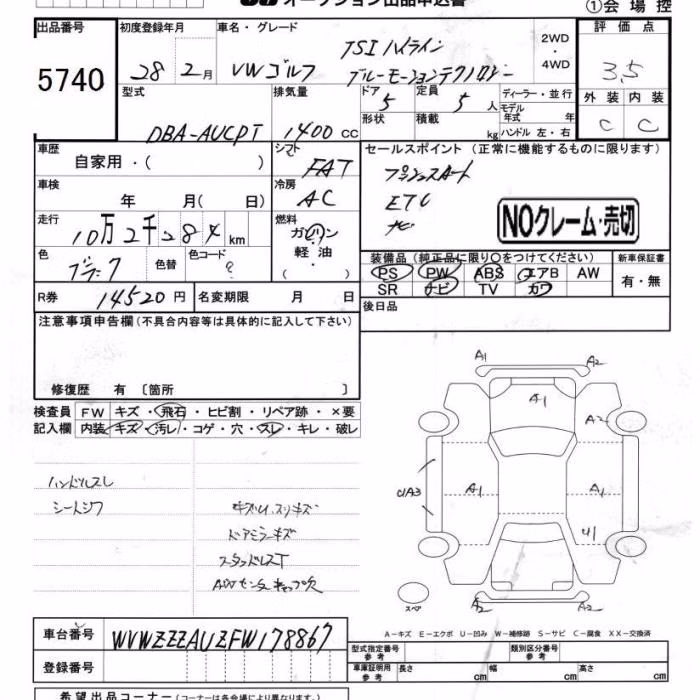 オークション出品申込書
①会場控
出品番号
5740
初度登録年月
28 2月
車名・グレード
VWゴルフ
TSIハイライン
ブルーモーションテクノロジー
2WD
・
4WD
評価点
3.5
外装 内装
C C
型式
DBA-AUCPT
排気量
1400cc
ドア
5
定員
5人
形状
積載
kg
ディーラー・並行
モデル
年式 年
ハンドル 左・右
車歴
自家用・( )
シフト
FAT
セールスポイント(正常に機能するものに限ります)
プッシュスタート
ETC
ナビ
NOクレーム・売切
車検
年 月( 日)
冷房
AC
走行
10万2千284km
燃料
ガソリン
軽油
・( )
色
ブラック
色替
色コード
?
装備品(純正品に限り○をつけてください)
PS PW ABS エアB AW
SR ナビ TV カワ
新車保証書
有・無
R券 14520円
名変期限 月 日
後日品
注意事項申告欄(不具合内容等は具体的に記入して下さい)
修復歴 有〔箇所 〕
検査員
記入欄
FW キズ・飛石・ヒビ割・リペア跡・×要
内装 キズ・汚レ・コゲ・穴・スレ・キレ・破レ
ハンドルスレ
シートシワ
ドアミラーキズ
スタッドレスT
A1
A2
A1
A2
A1
A1
A1
U1
A2
A2
スペア
A-キズ E-エクボ U-凹み W-補修跡 S-サビ C-腐食 XX-交換済
車台番号
WVWZZZAUZFW178867
登録番号
型式指定番号
参考
類別区分番号
参考
車庫証明用
参考
長さ cm
幅 cm
高さ cm
希望出品コーナー(コーナーは各会場により異なります。)